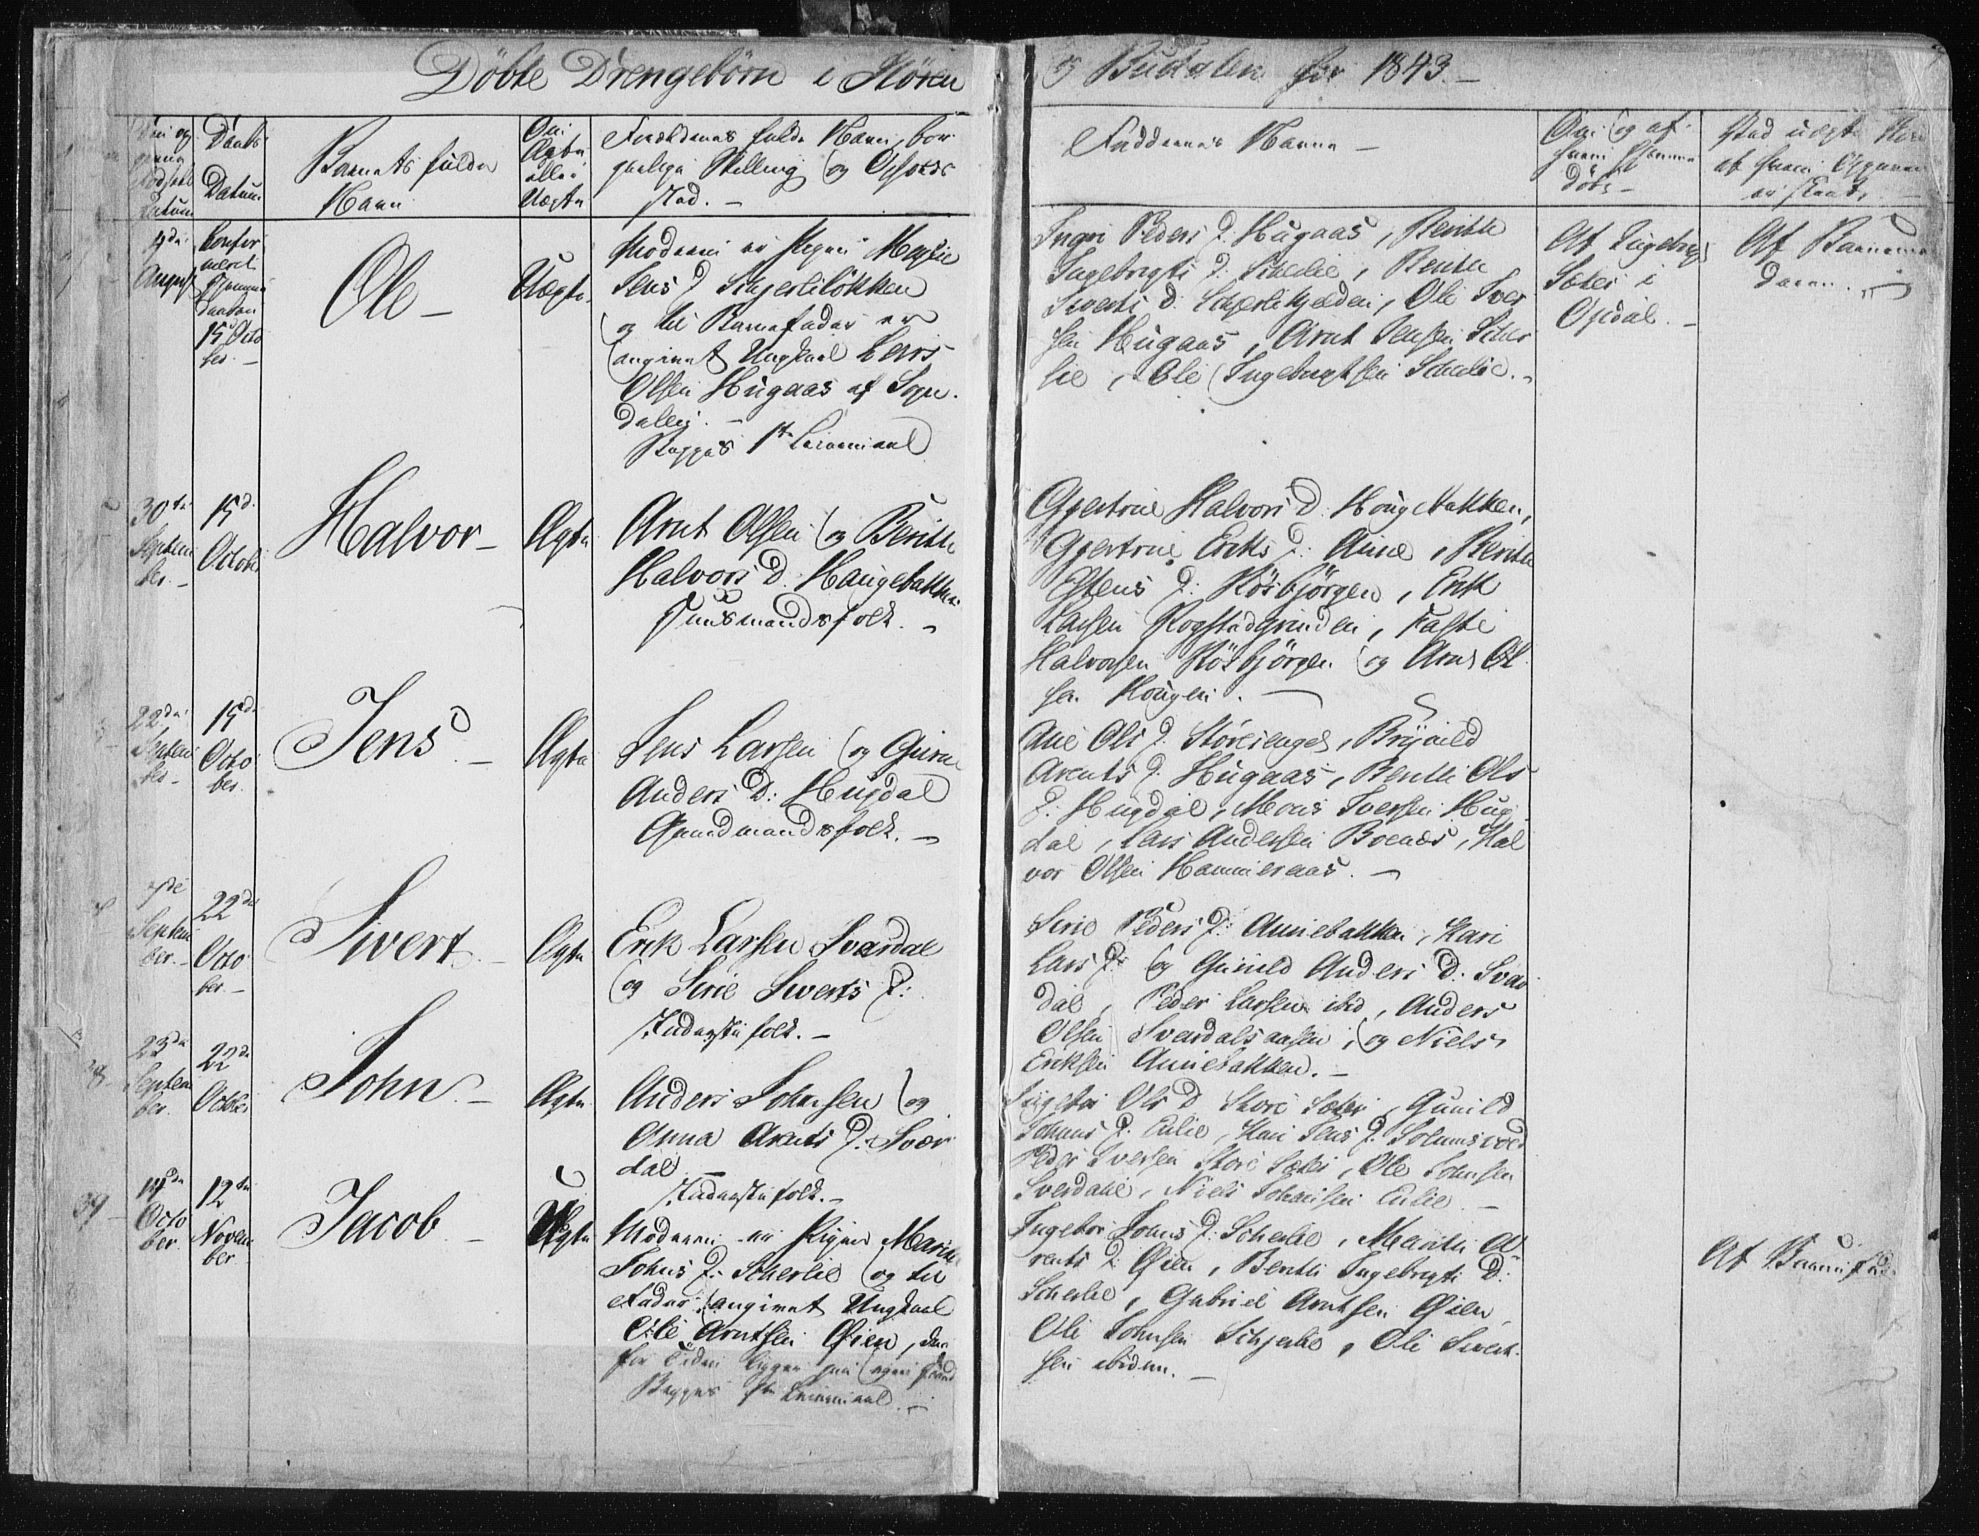 Döbte Drengebörn i Stören
og Budalen for 1843.
Daabs
Datum
Barnets fulde
Navn
Om
Ægte
eller
Uægte
Forældrenes fulde Navn, bor-
gerlige Stilling og Opholds
sted. —
Faddernes Navne —
Om og af
hvem hjemme
döbt —
4de
August
Confir
meret
hjemme
daaben
15de Octo
ber. —
Ole —
Uægte.
Moderen er Pigen
Jens D. Schjerliløkken
og til Barnefader er
angivet Ungkarl Lars
Olsen Hugaas af Sogn-
dalen. —
Begges 1ste Leiermaal
Ingri Peders D. Hugaas, Berith
Ingebrigts D. Scherlie, Berith
Siverts D. Ole Iver
sen Hugaas, Arnt Jensen Scher
lie, Ole Ingebrigtsen Scherlie. —
Af Ingebrigt
Sæter i
Opdal. —
Af Barnemo
deren. —
30te
Septem
ber. —
15de
October
Halvor —
Ægte
Arnt Olsen og Berith
Halvors D. Haugebakken
Huusmandsfolk. —
Gjertrue Halvors D. Hougbakken,
Gjertrue Eriks D. Aune, Berith
Estens D. Rösbjörgen, Erik
Larsen Rogstadgrinden, Faste
Halvorsen Rösbjörgen og Arnt Ol
sen Hougen. —
22de
Septem
ber —
15de
Octo
ber.
Jens. —
Ægte
Jens Larsen og Guru
Anders D: Hugdal
Gaardmandsfolk. —
Ane Ols D. Störesenget, Brynild
Arents D. Hugaas, Berith Ols
D. Hugdal, Mons Iversen Hug
dal, Lars Andersen Boenæs, Hal
vor Olsen Hammeraas. —
7de
Septem
ber. —
22de
Octo
ber. —
Sivert. —
Ægte
Erik Larsen Svardal
og Sirie Siverts D:
Inderstfolk. —
Sirie Peders D: Aunebakken, Kari
Lars D. og Gunild Anders D. Svar
dal, Peder Larsen ibid, Anders
Olsen Svardalsaasen, og Niels
Eriksen Aunebakken. —
38
23de
Septem
ber.
22de
October
John. —
Ægte
Anders Johnsen og
Anna Arnts D. Svar
dal —
Inderstfolk. —
Ols D. Store Sæter, Gunild
Johns D. Enlie, Kari Jens D. Solemsvold
Peder Iversen Store Sæter, Ole Johnsen
Sverdalie, Niels Johansen Enlie. —
39 —
14de
Octo
ber.
12te
Novem
ber
Jacob. —
Uægte
Moderen er Pigen Marith
Johns D. Scherlie og til
Fader angivet Ungkarl
Ole Arntsen Øien, der
for Tiden ligger paa
Begges 1ste Leiermaal. —
Ingebor Johns D: Scherlie, Marith A
rents D. Øien, Berith Ingebrigts D:
Scherlie, Gabriel Arntsen Øien,
Ole Johnsen Schjerlie, Ole Sivert-
sen ibidem. —
Af Barnefad